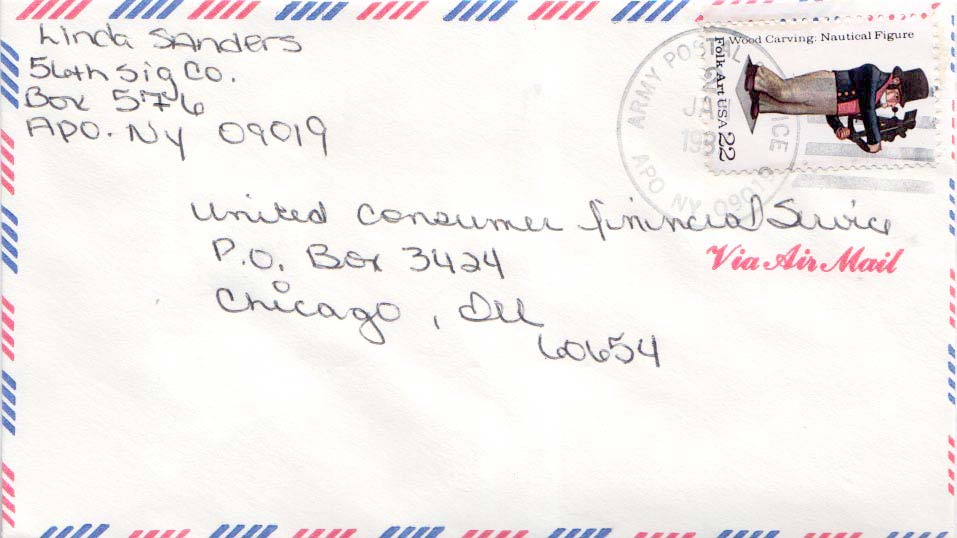 Linda Sanders
56th Sig Co.
Box 576
APO. NY 09019
Wood Carving: Nautical Figure
Folk Art USA 22
ARMY POSTAL
JA
198
APO NY 09019
United Consumer Financial Service
P.O. Box 3424
Via Air Mail
Chicago, Ill
60654